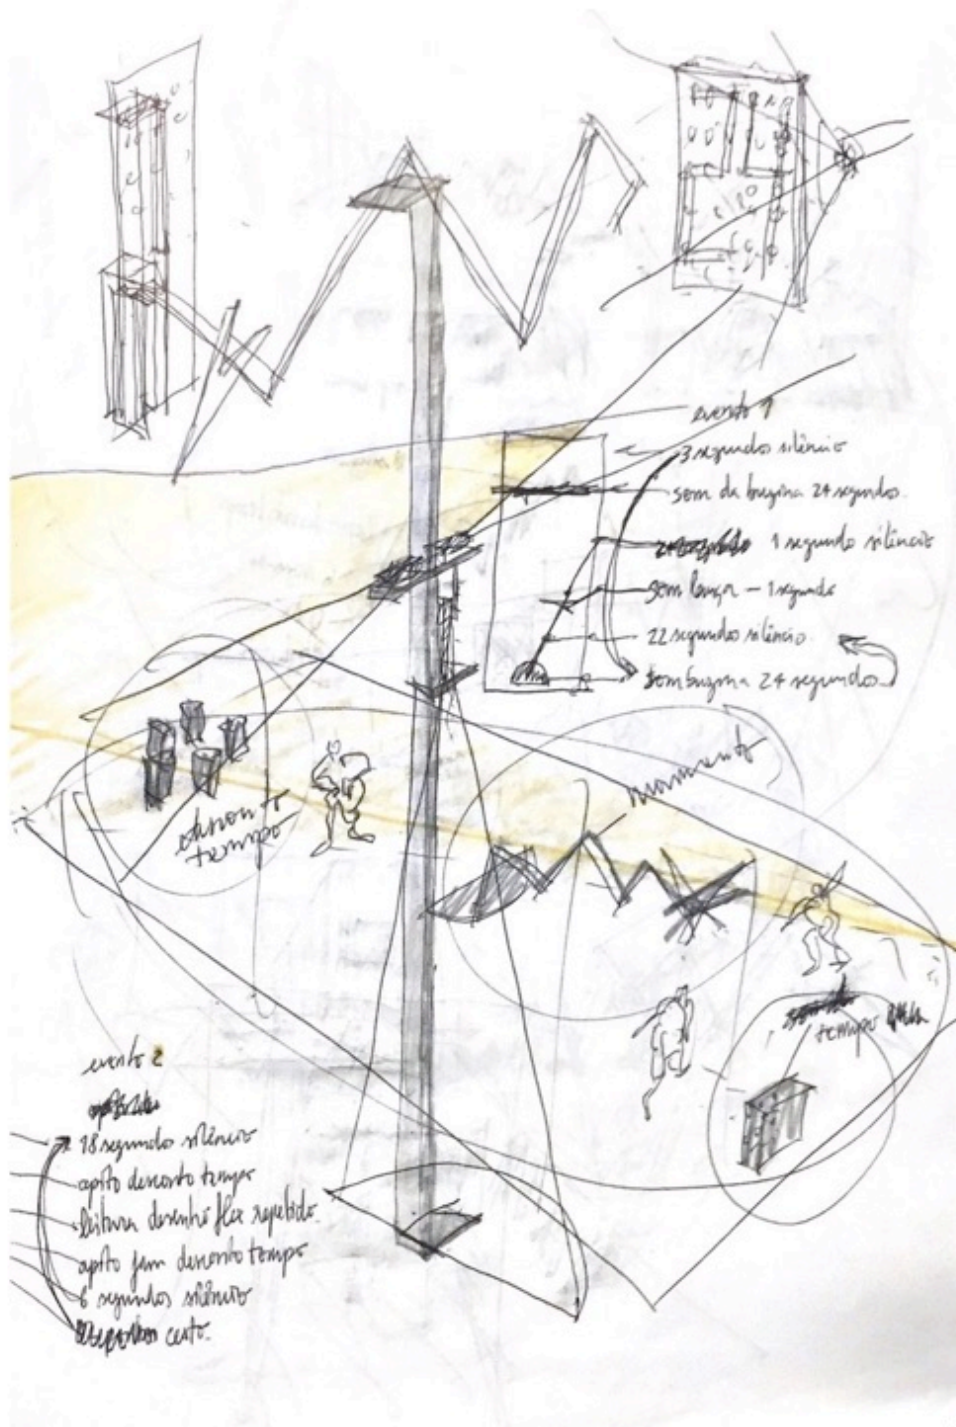 evento 1
3 segundos silêncio
som da buzina 24 segundos.
1 segundo silêncio
som lançar – 1 segundo
22 segundos silêncio.
som buzina 24 segundos
movimento
desconto
tempo
tempo
evento 2
18 segundos silêncio
apito desconto tempo
leitura desenho flex repetido.
apito fim desconto tempo
6 segundos silêncio
cesto.